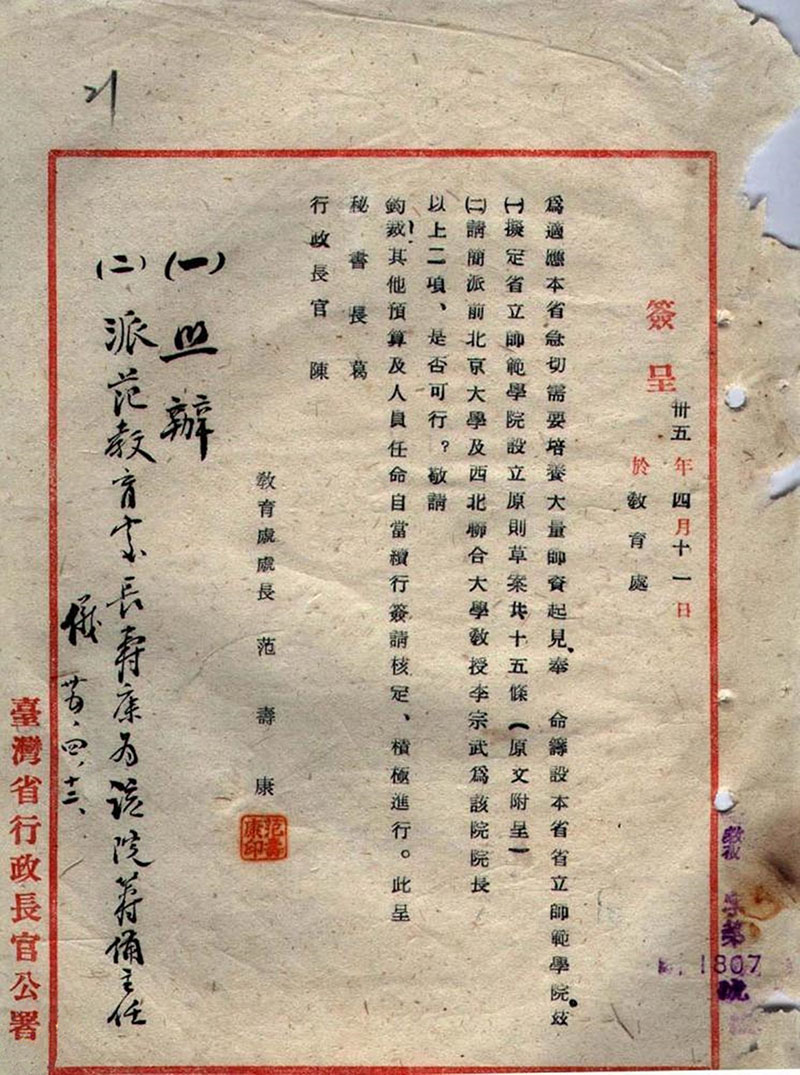 21
簽呈
卅五年四月十一日
於教育處
為適應本省急切需要培養大量師資起見，奉　命籌設本省省立師範學院，茲
㈠擬定省立師範學院設立原則草案共十五條（原文附呈）
㈡請簡派前北京大學及西北聯合大學教授李宗武為該院院長
以上二項、是否可行？敬請
鈞裁其他預算及人員任命自當續行簽請核定、積極進行。此呈
秘書長葛
行政長官陳
教育處處長　范壽康
范壽康印
(一)照辦
(二)派范教育處長壽康為該院籌備主任
儀
卅五、四、十三、
臺灣省行政長官公署
字第
1807
號